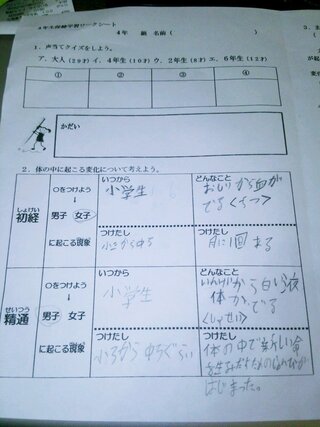 4年生保健学習ワークシート
4年 組 名前( )
1、声当てクイズをしよう。
ア、大人(29才)イ、4年生(10才)ウ、2年生(8才)エ、6年生(12才)
① ② ③ ④
かだい
2、体の中に起こる変化について考えよう。
しょけい
初経
○をつけよう
↓
男子 女子
に起こる現象
いつから
小学生
どんなこと
おしりから血が
でる
つけたし
小5から中
つけたし
月に1回 まる
せいつう
精通
○をつけよう
↓
男子 女子
に起こる現象
いつから
小学生
どんなこと
から白い液
体が、でる
つけたし
小5から 中1ぐらい
つけたし
体の中で新しい命
を生みだすための
はじまった。